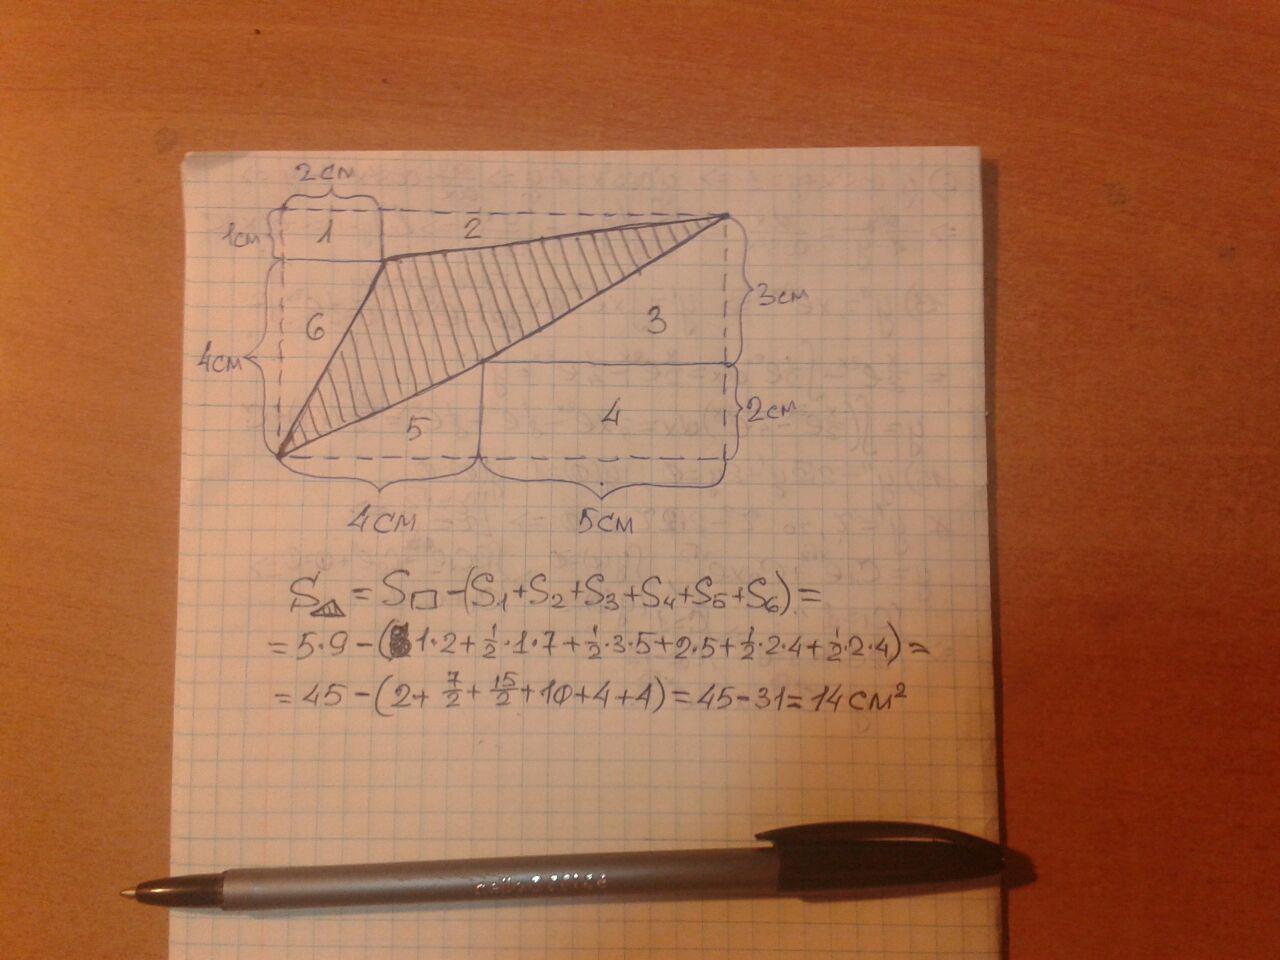 2см
1см
1
2
3см
6
3
4см
5
4
2см
4см
5см
S = S□ -(S₁+S₂+S₃+S₄+S₅+S₆)=
= 5·9 - (1·2+½·1·7+½·3·5+2·5+½·2·4+½·2·4) =
= 45 - (2+7/2+15/2+10+4+4) = 45-31= 14 см²